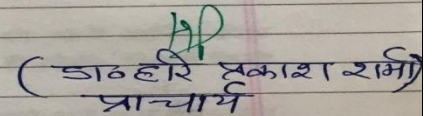 ( डा० हरि प्रकाश शर्मा)
प्राचार्य